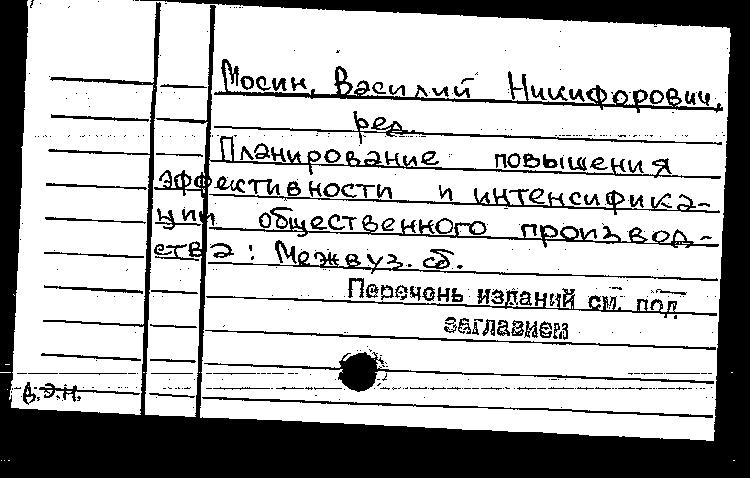 Мосин, Василий Никифорович,
ред.
Планирование повышения
эффективности и интенсифика-
ции общественного производ-
ства: Межвуз. сб.
Перечень изданий см. под
заглавием
д.э.н.